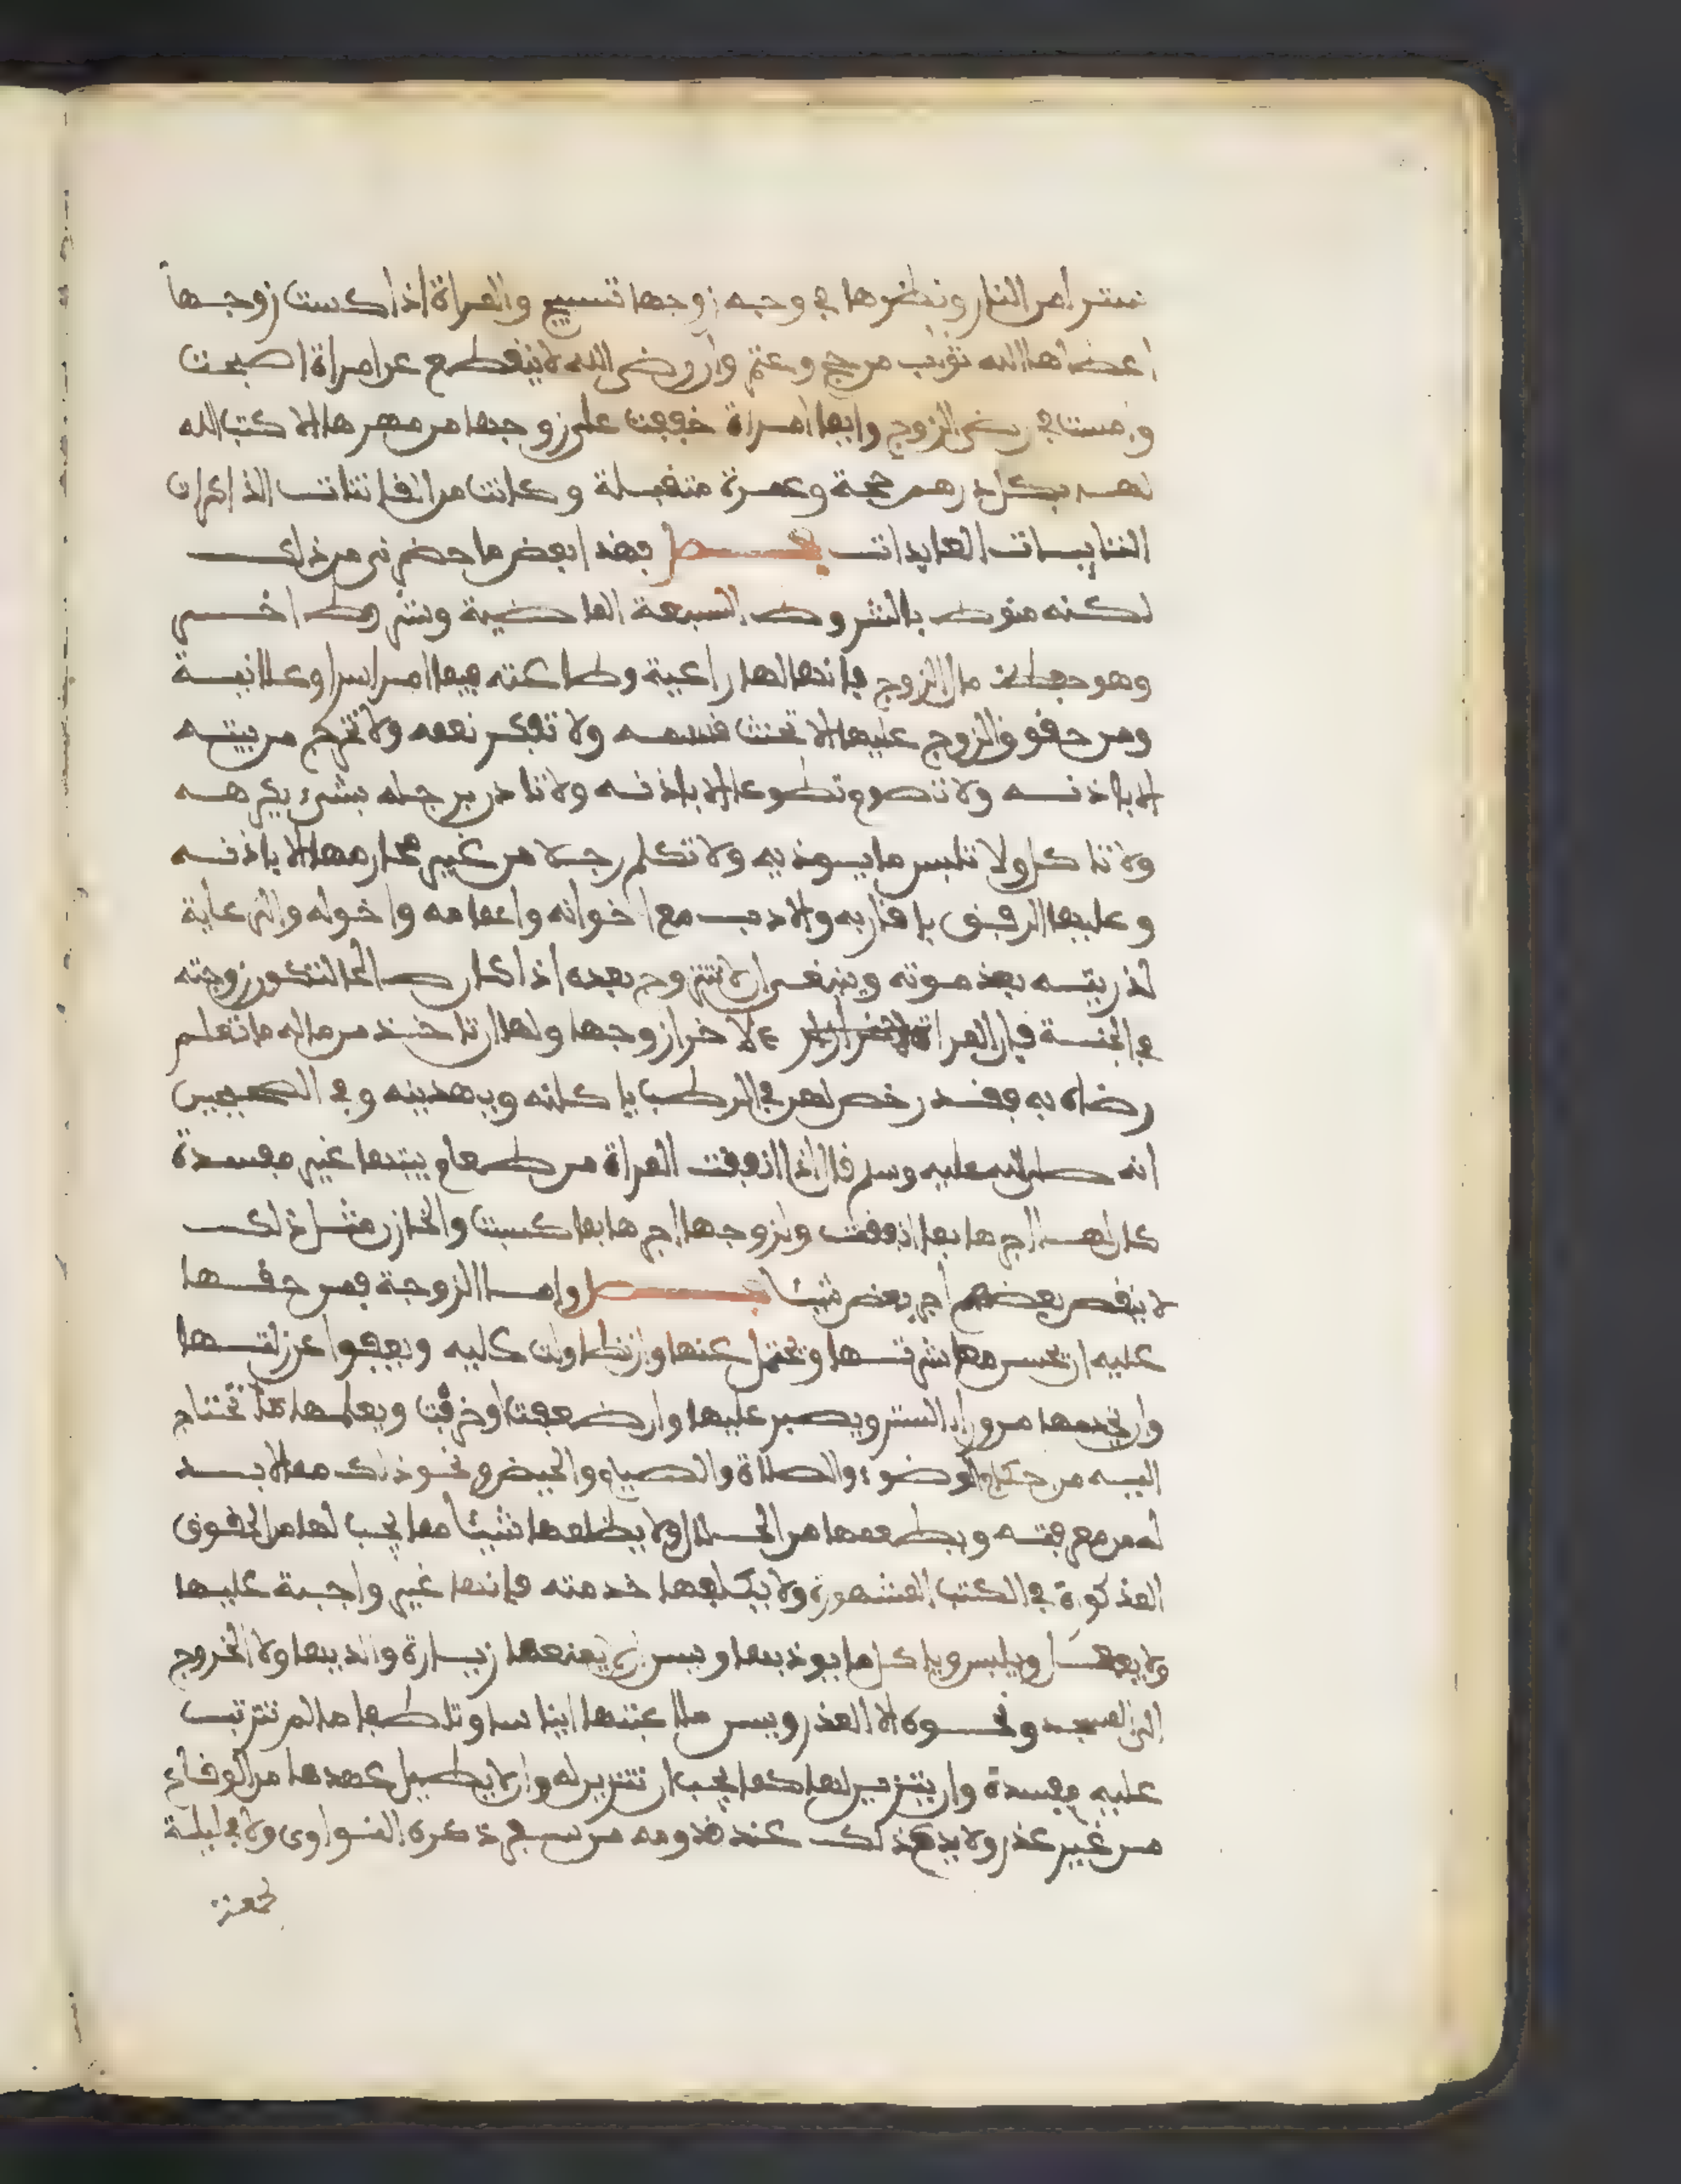 ستر من النار ونظرها في وجه زوجها تسبيح والمراة اذا كست زوجها
اعطاها الله ثواب من حج وعتم وان رضى الله لا ينقطع عن امراة اصبحت
وامست في رضى الزوج وايما امراة خففت على زوجها من مهرها الا كتب الله
لها بكل درهم حجة وعمرة متقبلة وكانت من القانتات الذاكرات
التايبات العابدات فصل فهذا بعض ما حضرني من ذلك
لكنه منوط بالشروط السبعة الماضية وشروط اخـــر
وهو حفظ مال الزوج فانها لها راعية وطاعته فيما امر اسرا وعلانية
ومن حقوق الزوج عليها الا تحنث قسمه ولا تكفر نعمه ولا تخرج من بيته
الا باذنه ولا تصوم تطوعا الا باذنه ولا تادن برجله بشيء يكرهه
ولا تاكل ولا تلبس ما يوذيه ولا تكلم رجلا من غير محارمها الا باذنه
وعليها الرفق باقاربه والادب مع اخوانه واعمامه واخواله والرعاية
لذريته بعد موته وينبغي ان لا تتزوج بعده اذا كان صالحا لتكون زوجته
في الجنة فان المراة لاخر ازوجها ولها ان تاخذ من ماله ما تعلم
رضاه به فقد رخص لهن في الرطب ياكلنه ويهدينه وفي الصحيحين
انه صلى الله عليه وسلم قال اذا انفقت المراة من طعام بيتها غير مفسدة
كان لها اجرها بما انفقت ولزوجها اجرها بما كسبت وللخازن مثل ذلك
لا ينقص بعضهم اجر بعض شيئا فصل واما الزوجة فمن حقها
عليه ان يحسن معاشرتها ويحتمل عنها وان تطاولت عليه ويعفوا عن زلتها
وان يخدمها من وراء الستر ويصبر عليها وان ضعفت او خرقت ويعلمها ما تحتاج
اليه من احكام الوضوء والصلاة والصيام والحيض ونحو ذلك مما لا بد
له من معرفته ويطعمها من الحلال ولا يظلمها شيئا مما يجب لها من الحقوق
المذكورة في الكتب المشهورة ولا يكلفها خدمته فانها غير واجبة عليها
ولا يفعل ويلبس وياكل ما يوذيها ويسن ان لا يمنعها زيارة والديها ولا الخروج
الى المسجد ونحوه الا لعذر ويسن ملاعبتها ايناسا وتلطفا ما لم تترتب
عليه مفسدة وان يتزين لها كما يجب ان تتزين له وان لا يطيل عهدها من الوقاع
من غير عذر ولا يدع ذلك عند قدومه من سفر ذكره النواوي ولا في ليلة
لجمعة